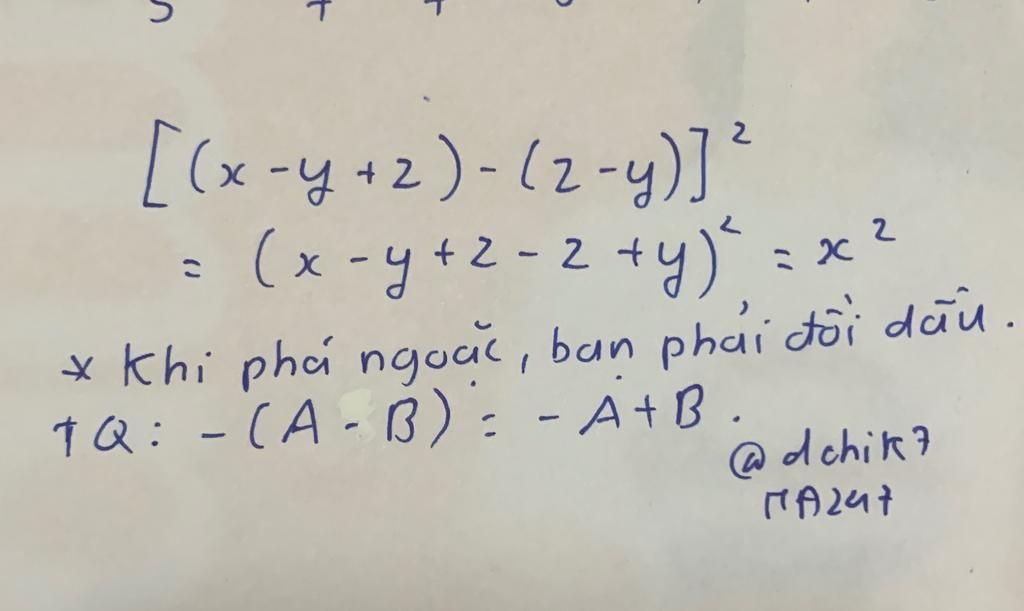 [(x - y + z) - (z - y)]²
= (x - y + z - z + y)² = x²
* Khi phá ngoặc, bạn phải đổi dấu.
TQ: - (A - B) = - A + B.
@dchik7
MA247